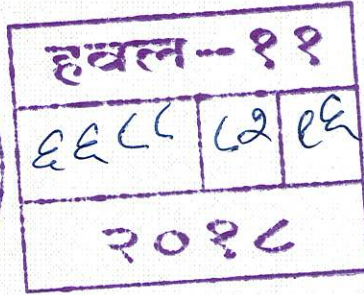 हवल--११
६६८८ ८२ ९६
२०१८